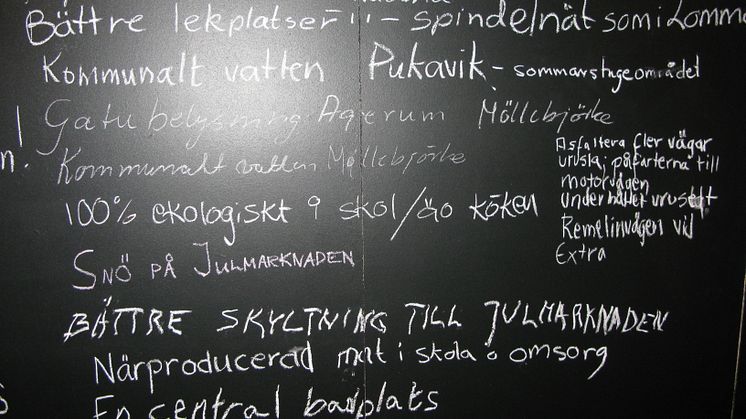 Bättre lekplatser!! - spindelnät som i Lomma
Kommunalt vatten Pukavik - sommarstugeområdet
Gatubelysning Agerum Möllebjörke
Kommunalt vatten Möllebjörke
n!
100% ekologiskt i skol/äo köken
Asfaltera fler vägar
urusla påfarterna till
motorvägen
underhållet urustat
Remelinvägen vid
Extra
SNÖ PÅ JULMARKNADEN
BÄTTRE SKYLTNING TILL JULMARKNADEN
Närproducerad mat i skola o omsorg
En central badplats